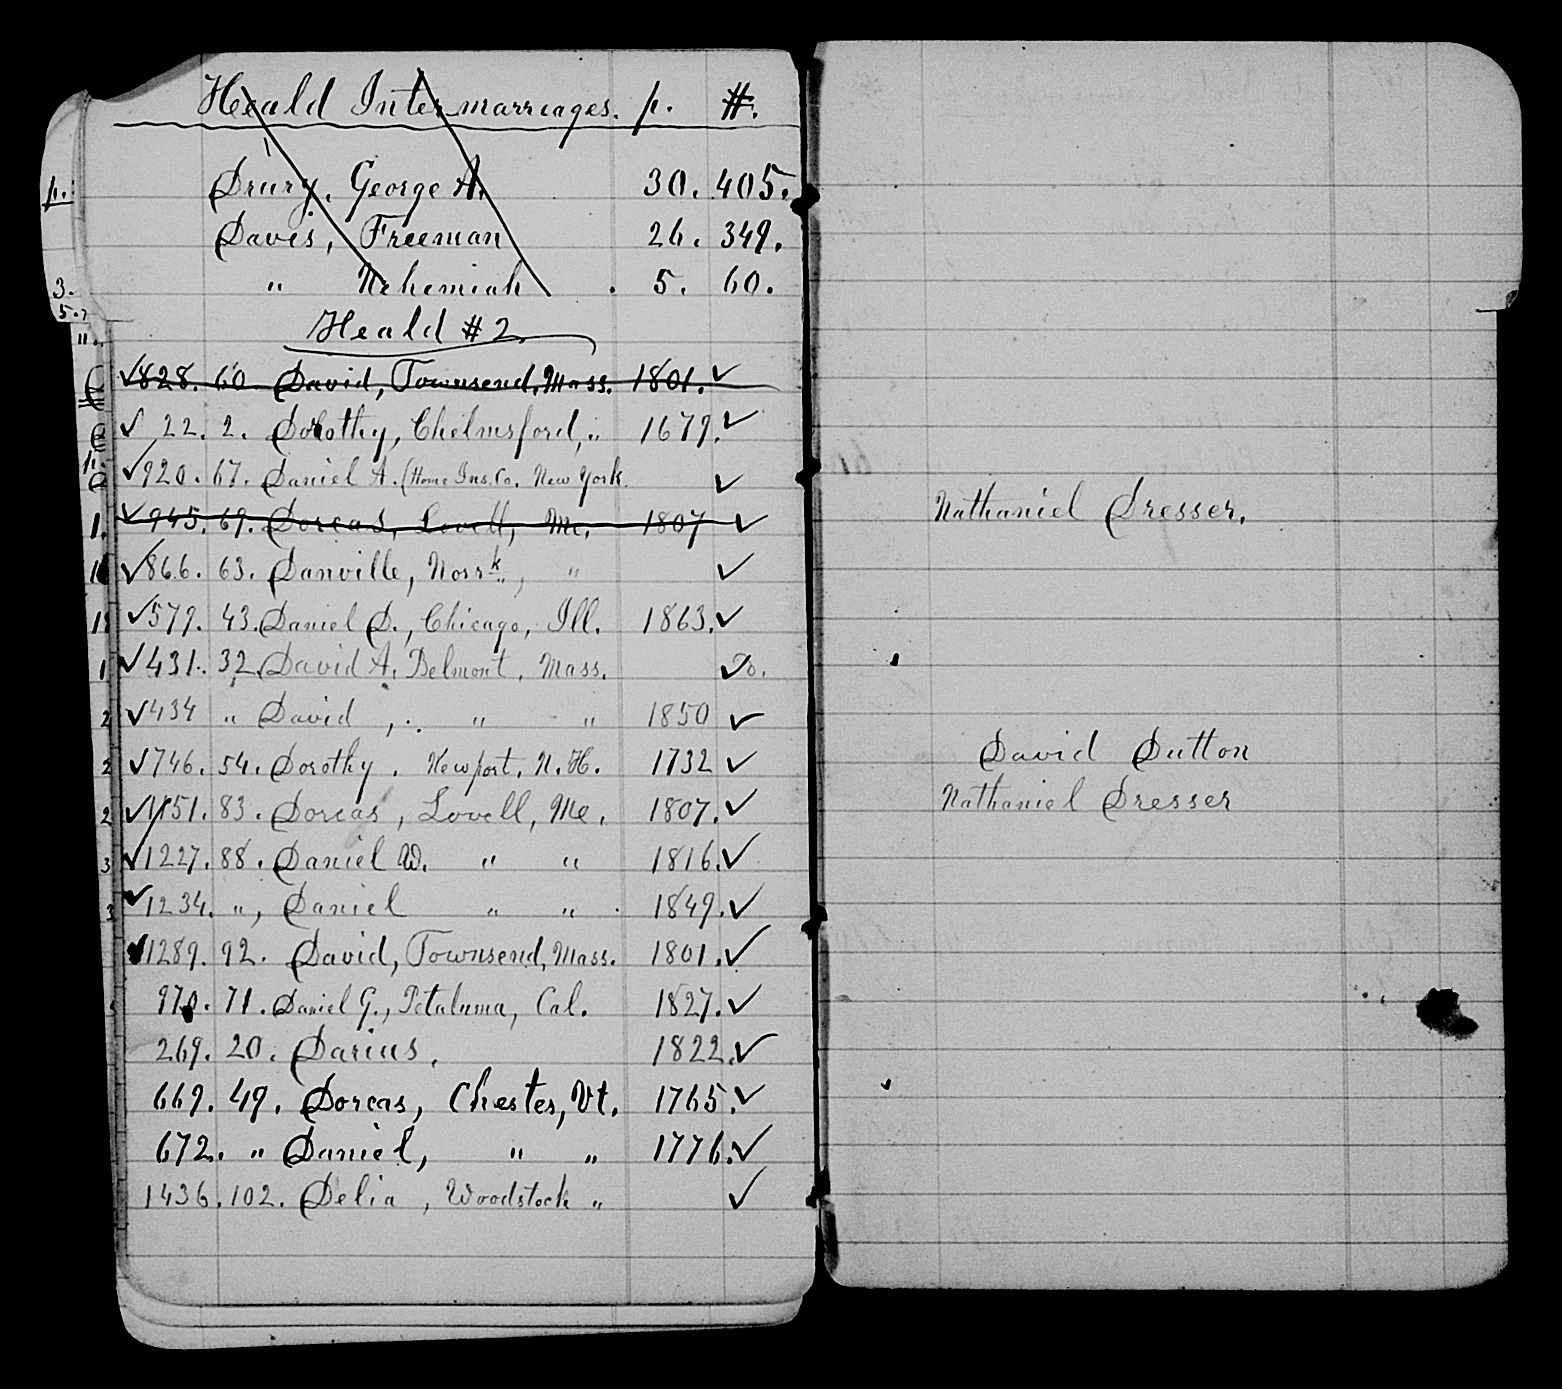 Heald Intermarriages. p. #.
p.
Drury, George A. 30. 405.
Davis, Freeman 26. 349.
" Nehemiah . 5. 60.
3.
5.
Heald #2
".
✓828. 60. David, Townsend, Mass. 1801. ✓
✓ 22. 2. Dorothy, Chelmsford, " 1679. ✓
✓920. 67. Daniel A. (Home Ins. Co. New York. ✓
✓945. 69. Dorcas, Lovell, Me. 1807 ✓
Nathaniel Dresser.
✓866. 63. Danville, " ✓
✓579. 43. Daniel D., Chicago, Ill. 1863. ✓
✓431. 32. David A. Belmont, Mass. ✓
✓434 " David, " " 1850 ✓
David Dutton
✓746. 54. Dorothy. Newport, N. H. 1732 ✓
Nathaniel Dresser
✓1151. 83. Dorcas, Lovell, Me. 1807. ✓
✓1227. 88. Daniel W. " " 1816. ✓
✓1234. ", Daniel " " . 1849. ✓
✓1289. 92. David, Townsend, Mass. 1801. ✓
970. 71. Daniel G., Petaluma, Cal. 1827. ✓
269. 20. Darius. 1822. ✓
669. 49. Dorcas, Chester, Vt. 1765. ✓
672. " Daniel, " " 1776. ✓
1436. 102. Delia, Woodstock " ✓